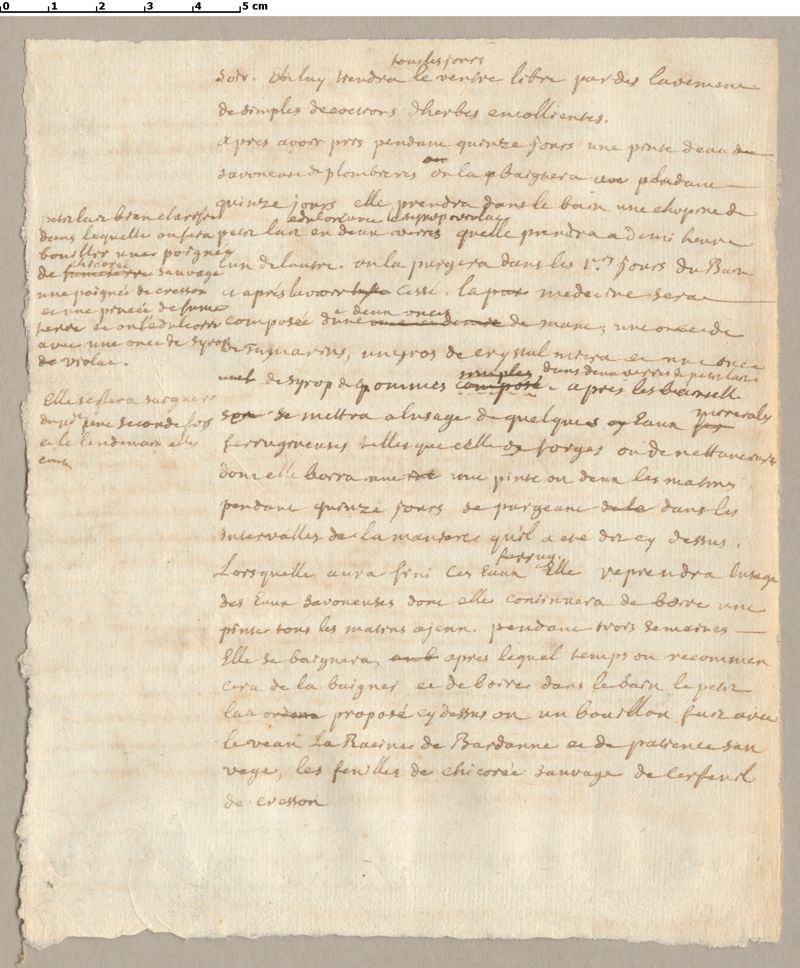 0 1 2 3 4 5 cm
tous les jours
soir. on luy tiendra le ventre libre par des lavemens
de simples decoctions dherbes emollientes.
apres avoir pris pendant quinze jours une pinte deau de
savoneuse de plombieres on la baignera pendant
quinze jours elle prendra dans le bain une chopine de
petit lait en deux verres quelle prendra a demi heure
lun de lautre. on la purgera dans les 1.ers jours du Bain
et apres lavoir cessé. la medecine sera
a deux onces
composée dune de mane, une once de
de tamarins, un gros de crystal mineral et une once
simples dans deux verres de petit lait
de syrop de pommes composé. apres les bains elle
minerales
se mettra a lusage de quelques Eaux
ferrugineuses telles que celle de forges ou de nettancourt
dont elle boira une pinte ou deux les matins
pendant quinze jours se purgeant dans les
intervalles de la maniere qu'il a ete dit cy dessus.
ferrug.
Lorsquelle aura fini ces Eaux Elle reprendra lusage
des Eaux savoneuses dont elle continuera de boire une
pinte tous les matins a jeun. pendant trois semaines
Elle se baignera, apres lequel temps on recommen
cera de la baigner et de boire dans le bain le petit
lait proposé cy dessus ou un bouillon fait avec
le veau La Racine de Bardanne et de patience sau
vage, les feuilles de chicorée sauvage de cerfeuil
de cresson
petit lait bien clarifié
dans lequelle on fera
bouillir une poignée
chicorée
de sauvage
une poignée de cresson
et une pincée de fume
terre et on l'edulcorera
avec une once de syrop
de violat.
Elle se fera saigner
du pied une seconde fois
et le lendemain elle